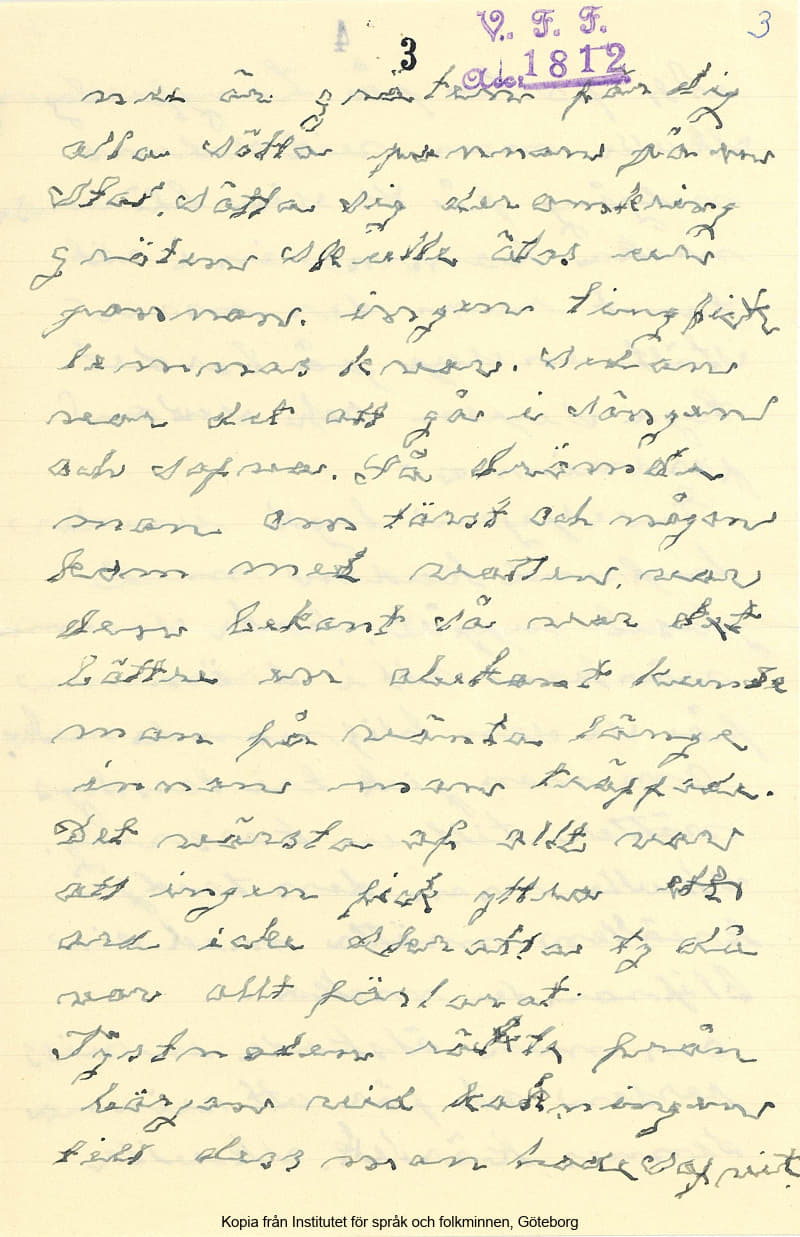 3
V. F. F.
Acc. 1812
3
nu är gröten fär dig
alla sätta pannan på en
stol, sätta sig deromkring
gröten skulle ätas ur
pannan. ingen ting fick
lemnas kvar. Sedan
var det att gå i sängen
och sofva. Så drömde
man om törst och någon
kom med vatten, var
den bekant så var det
bättre en obekant kunde
man få vänta länge
innan man träffade.
Det värsta af allt var
att ingen fick yttra ett
ord icke skratta ty då
var allt förlorat.
Tystnaden räckte från
början vid kokningen
till dess man hade sofvit
Kopia från Institutet för språk och folkminnen, Göteborg